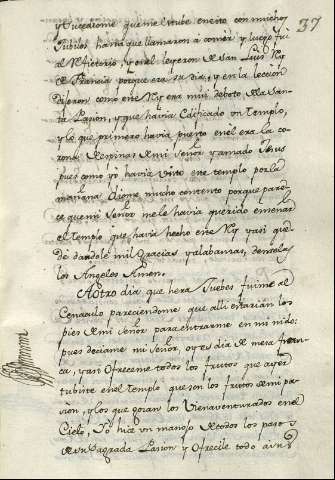 37
y sucediome que me estube en esto con mucho
Jubilo hasta que llamaron a comer y luego fui
al Refitorio, y en el leyeron de San Luis Rey
de Francia porque era su dia, y en la leccion
dijeron como este Rey era mui deboto de la San-
ta Pasion, y que havia edificado un Templo,
y lo que primero havia puesto en el era la co-
rona de espinas de mi Señor y amado Jesus
pues como yo havia visto este templo por la
mañana diome mucho contento porque pare-
ce que mi Señor me le havia querido enseñar
el Templo que havia hecho este Rey y asi que-
de dandole mil gracias y alabansas, densela
los Angeles Amen.
A otro dia que hera Juebes fuime al
Cenaculo pareciendome que alli estarian los
pies de mi Señor para entrarme en mi nido:
pues deciame mi Señor, oy es dia de mesa fran-
ca, y asi ofreceme todos los frutos que ayer
tubiste en el templo que son los frutos de mi pa-
sion, y los que gosan los Bienaventurados en el
Cielo, Yo hice un manojo de todos los pasos
de su Sagrada Pasion y ofrecile todo a su